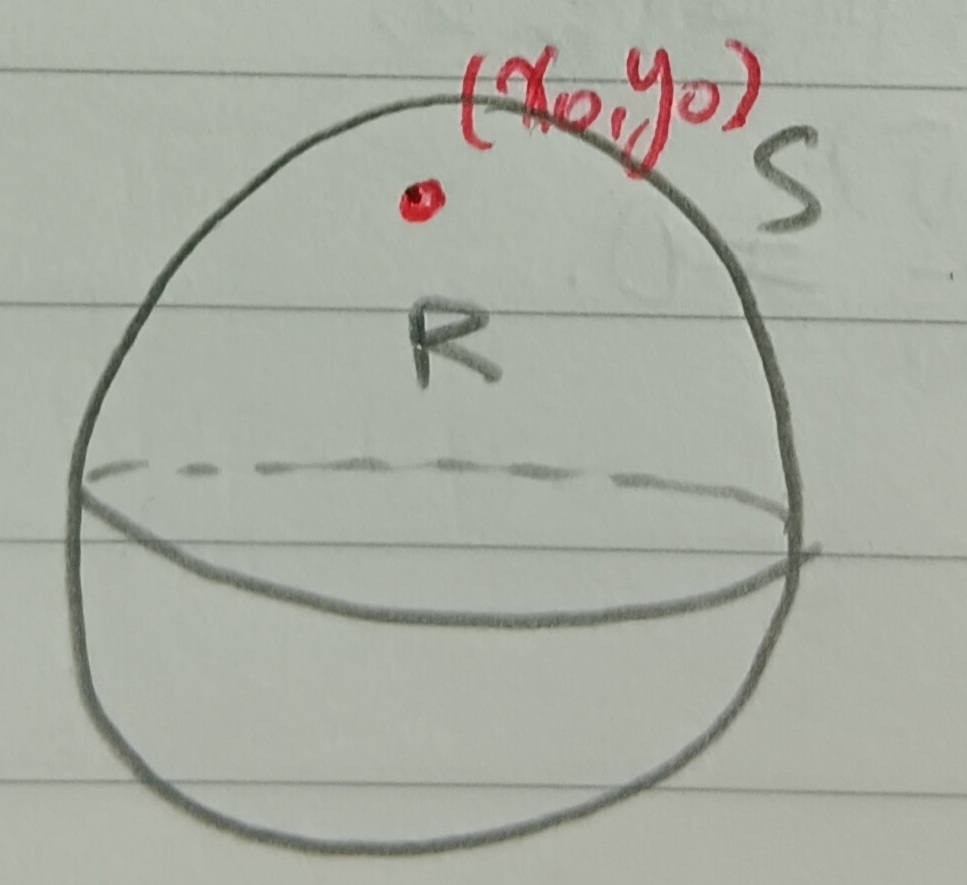 (x₀,y₀)
S
R